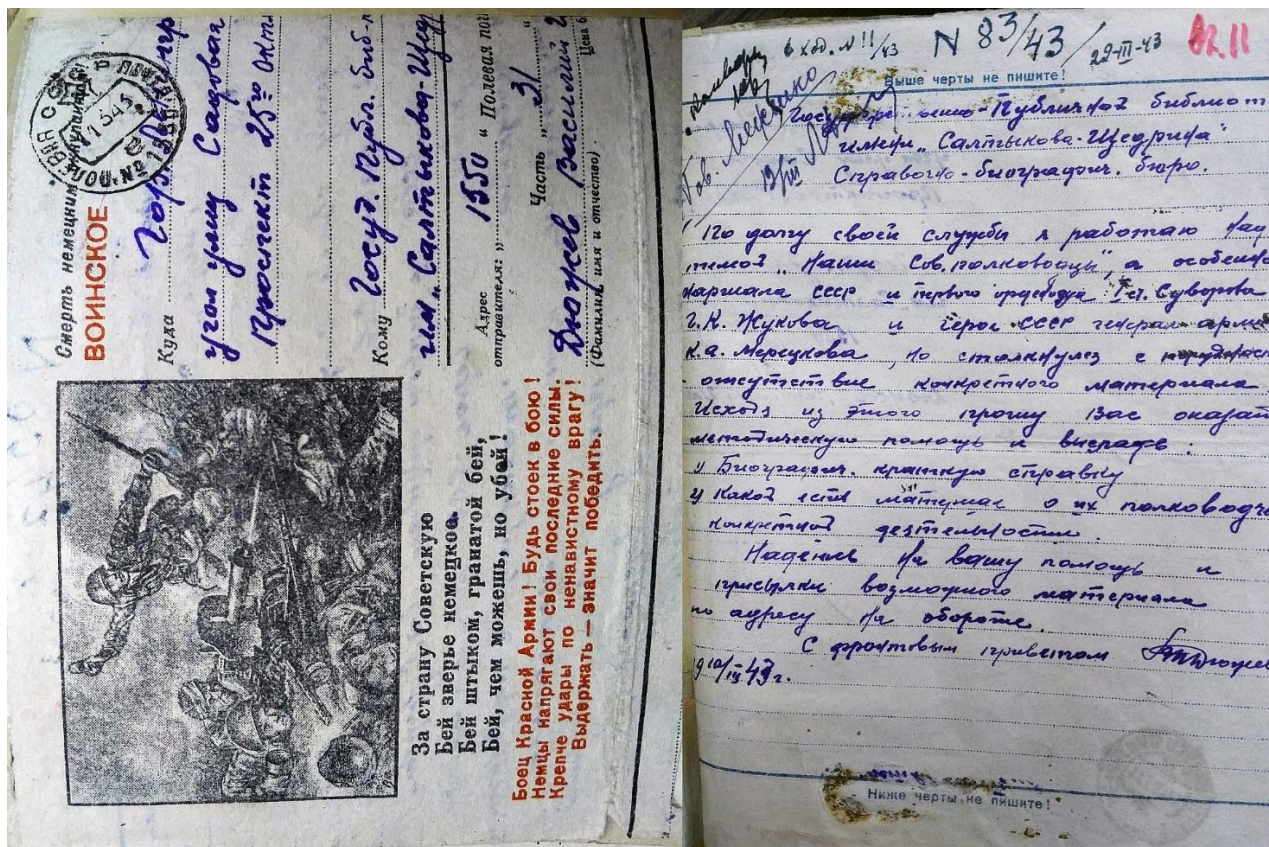 Смерть немецким
ВОИНСКОЕ
Куда Гор. Ленингр
угол улиц Садовая
Проспект 25го Окт
Кому Госуд. Публ. биб-
им. „Салтыкова-Щед
Адрес
отправителя: „1550“ Полевая поч
Часть „31
Дюжев Василий
(Фамилия, имя и отчество)
Цена 6
За страну Советскую
Бей зверье немецкое.
Бей штыком, гранатой бей,
Бей, чем можешь, но убей!
Боец Красной Армии! Будь стоек в бою!
Немцы напрягают свои последние силы.
Крепче удары по ненавистному врагу!
Выдержать — значит победить.
вход. N 11/43 N 83/43/ 29-III-43
Выше черты не пишите!
Государственно-Публичной библиот
имени „Салтыкова-Щедрина“
Справочно-биографич. бюро.
По долгу своей службы я работаю над
темой „Наши Сов. полководцы“, а особенно
Маршала СССР и первого орденодца I ст. Суворова
Г. К. Жукова и героя СССР генерал арми
К. А. Мерецкова, но столкнулся с трудност
- отсутствие конкретного материала
Исходя из этого прошу Вас оказат
методическую помощь и выслать:
1) Биографич. краткую справку
2) Какой есть материал о их полководч
конкретной деятельности.
Надеюсь на вашу помощь и
присылки возможного материала
по адресу на обороте.
С фронтовым приветом Дюжев
10/III 43 г.
Ниже черты не пишите!